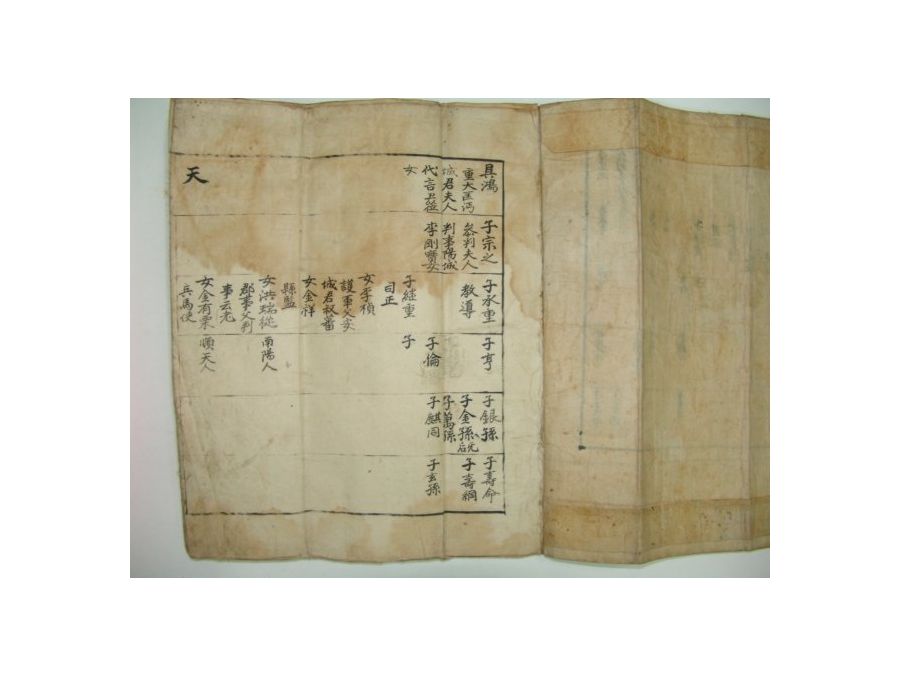 具鴻
重大匡沔
城君夫人
代言丑
女
天
子宗之
叅判夫人
判事陽城
李剛
子永重
教導
子継重
司正
女李禎
護軍父安
城君叔蕃
女金祥
縣監
女洪瑞從
郡事父判
事云老
女金有栗
兵馬使
子亨
子倫
子
南陽人
順天人
子銀孫
子金孫
无后
子萬孫
子麒同
子壽命
子壽綱
子玄孫